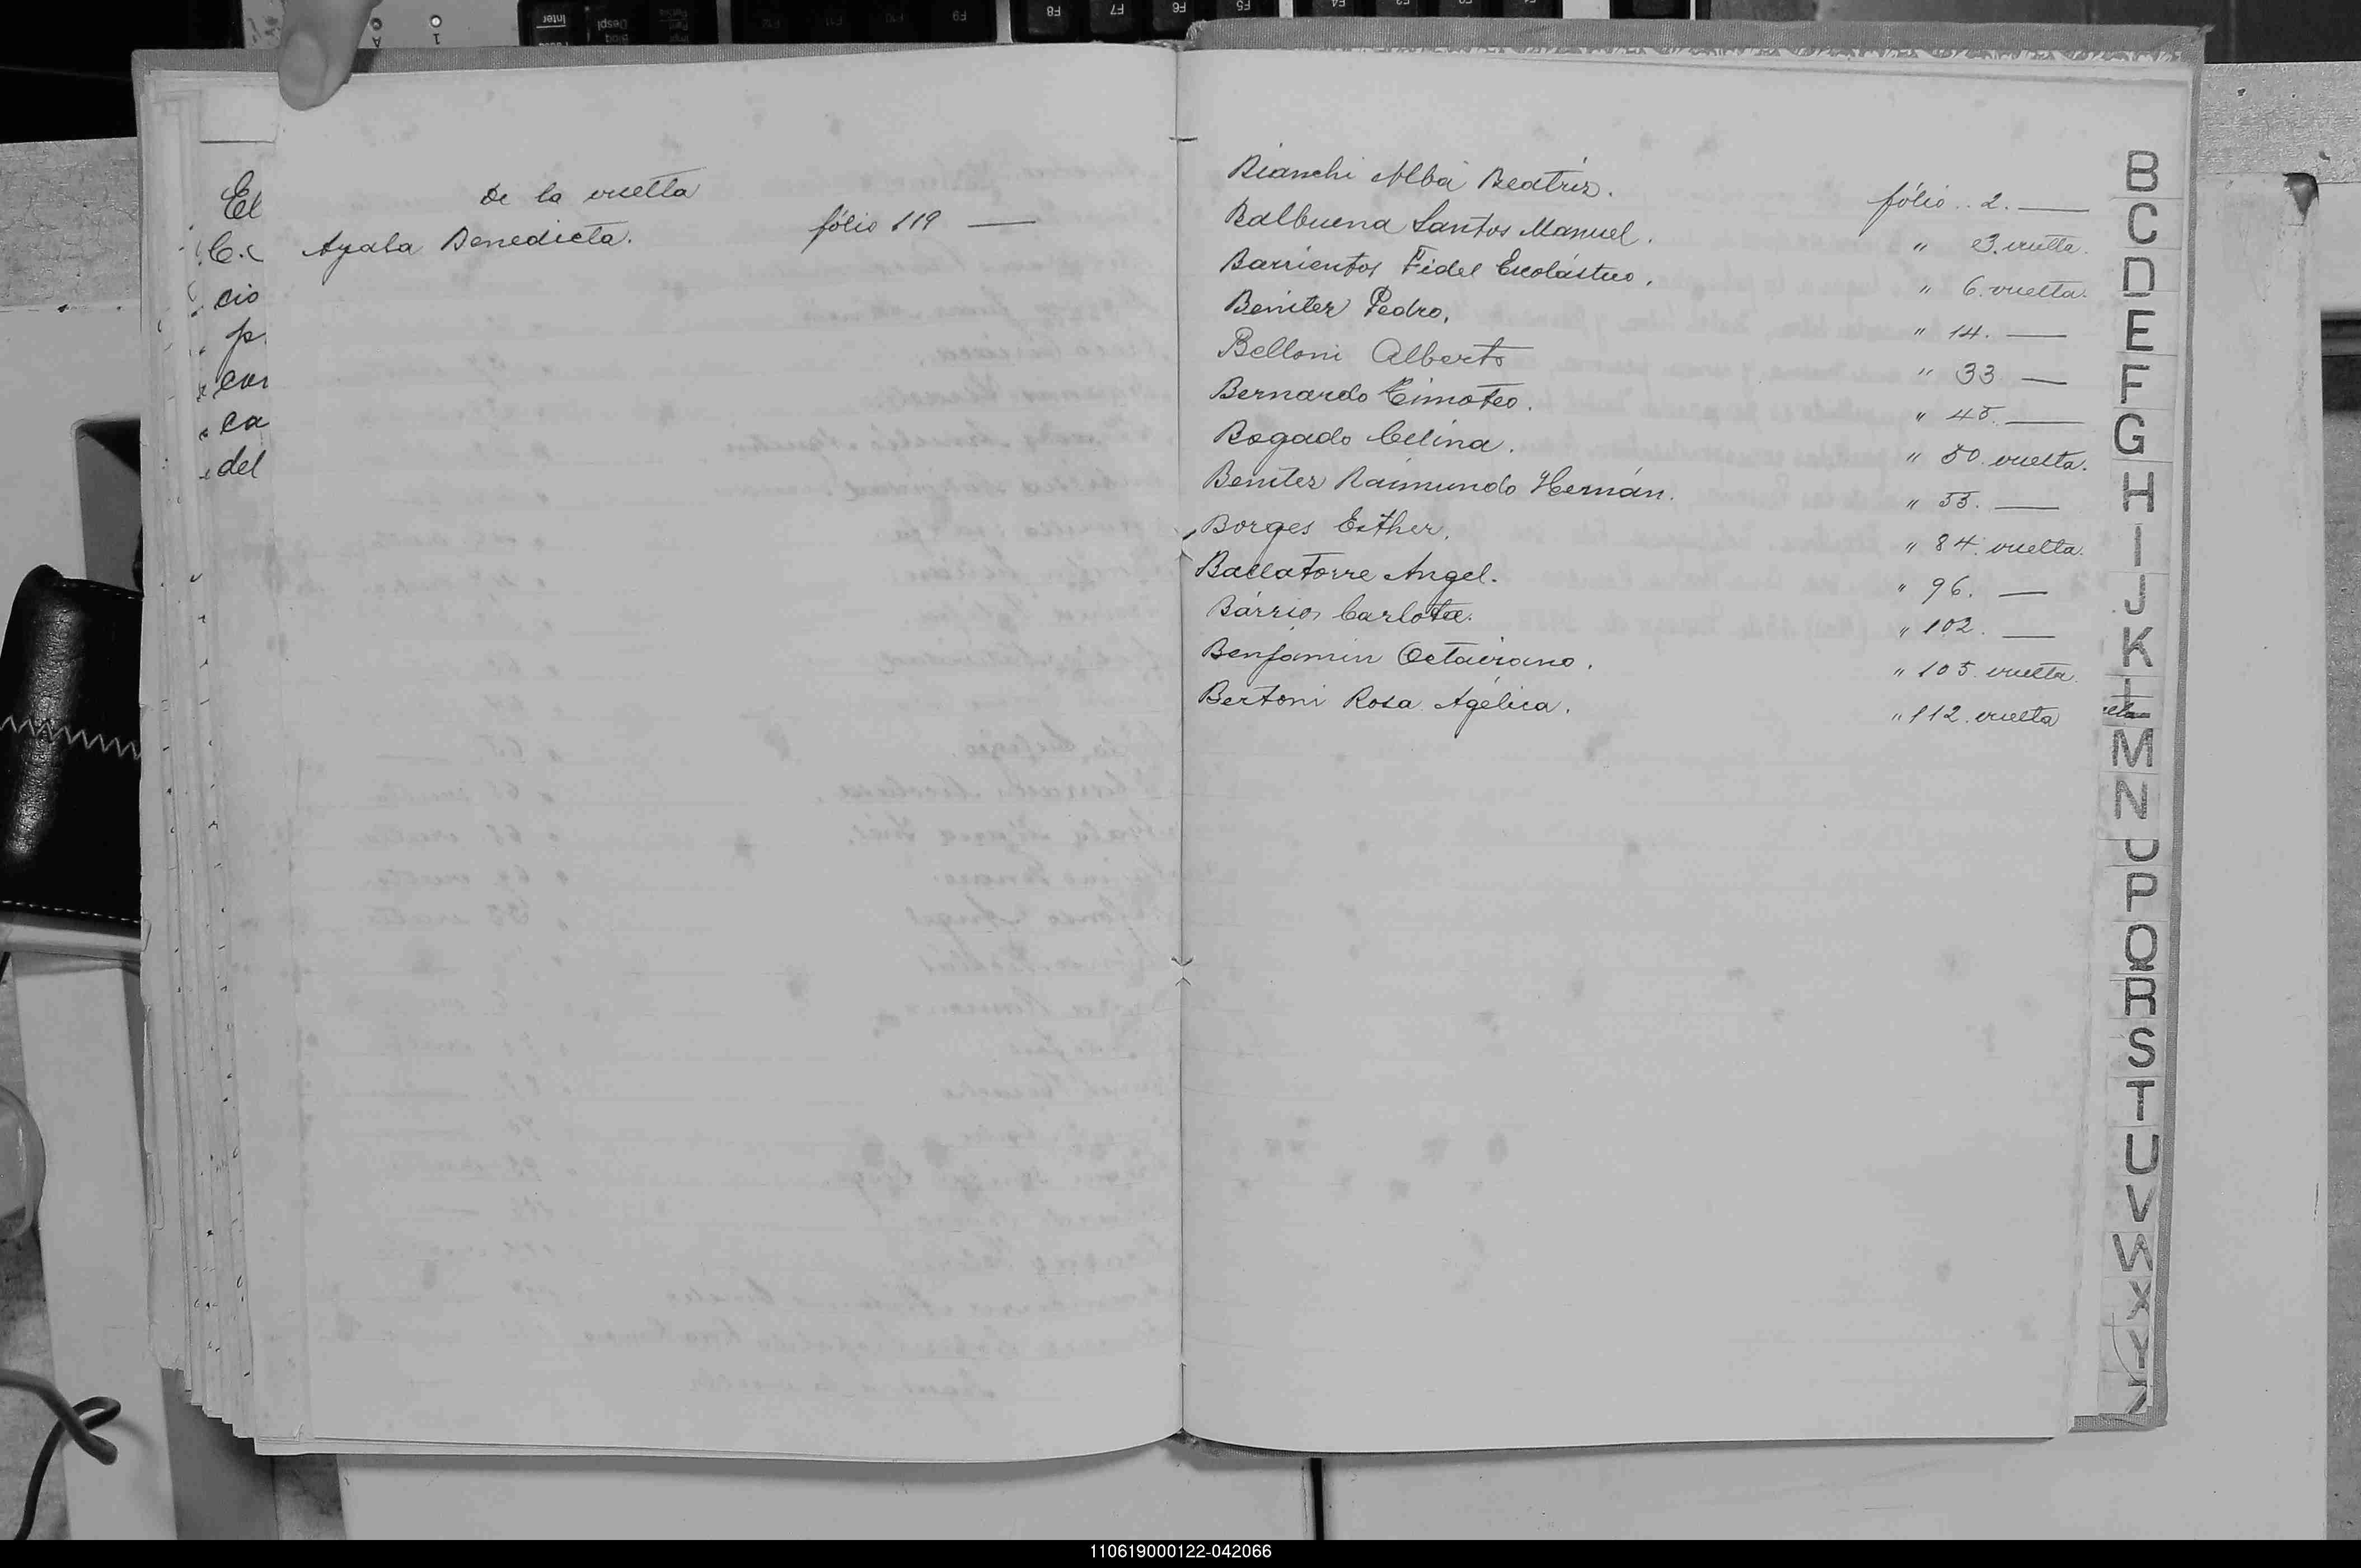 De la vuelta
Ayala Benedicta. fólio 119 —
El
C.c
cio
p
con
ca
del
Bianchi Alba Beatriz. fólio.. 2. —
Balbuena Santos Manuel. " 3. vuelta.
Barrientos Fidel Escolástico. " 6. vuelta.
Beniter Pedro. " 14. —
Belloni Alberto " 33 —
Bernardo Timoteo. " 45. —
Bogado Celina. " 50. vuelta.
Beniter Raimundo Hernán. " 55. —
Borges Esther. " 84. vuelta.
Ballatorre Angel. " 96. —
Bárrios Carlota. " 102. —
Benjamin Octaviano. " 105. vuelta.
Bertoni Rosa Agélica. " 112. vuelta
B
C
D
E
F
G
H
I
J
K
L
M
N
O
P
Q
R
S
T
U
V
W
X
Y
Z
110619000122-042066